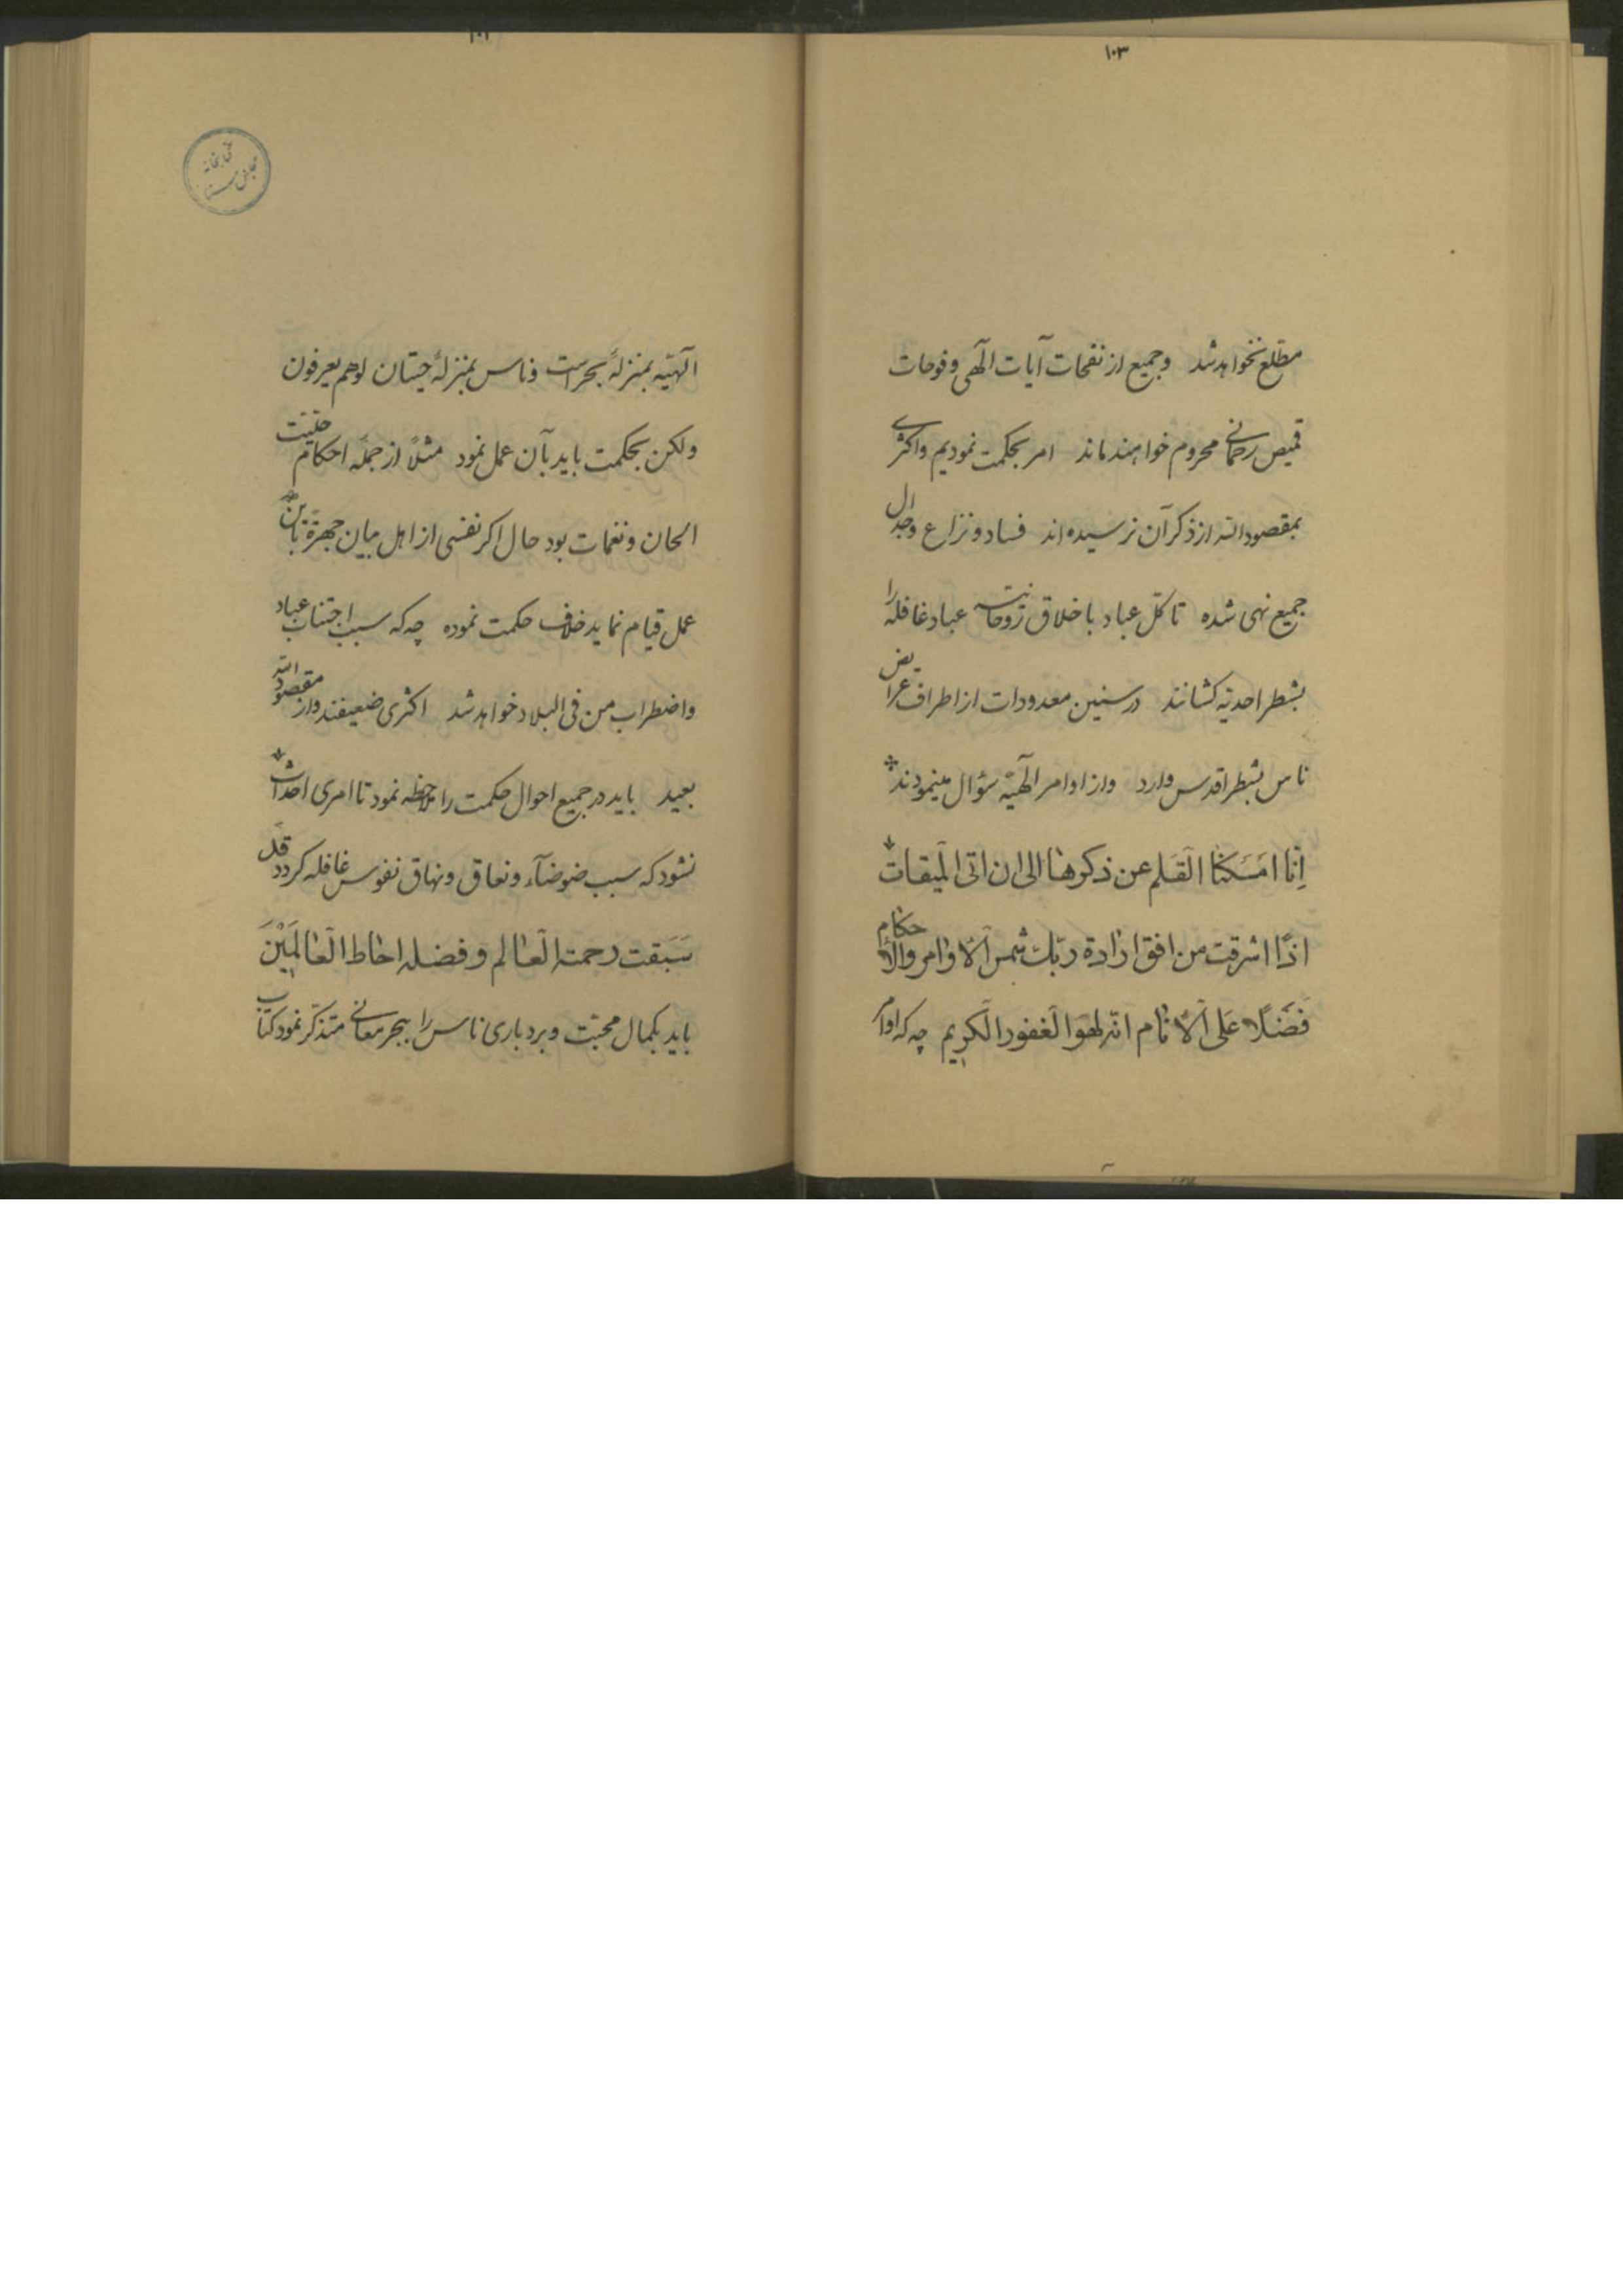 ۱۰۳
مطّلع نخواهد شد و جمیع از نفحات آیات الٓهی و فوحات
قمیص رحمانی محروم خواهند ماند امر بحکمت نمودیم و اکثری
بمقصود الله از ذکر آن نرسیده‌اند فساد و نزاع و جدال
جمیع نهی شده تا کلّ عباد باخلاق روحانیّه عباد غافله را
بشطر احدیّه کشانند در سنین معدودات از اطراف عرایض
ناس بشطر اقدس وارد و از اوامر الٓهیّه سؤال مینمودند
اِنّا امسکنا القلم عن ذکرها الی ان اتی المیقات
اذًا اشرقت من افق ارادة ربّک شمس الاوامر والاحکام
فضلًا علی الانام انّه لهو الغفور الکریم چه که اوامر
الٓهیّه بمنزلهٔ بحر است و ناس بمنزلهٔ حیتان لو هم یعرفون
ولکن بحکمت باید بآن عمل نمود مثلًا از جمله احکام حلّیّت
الحان و نغمات بود حال اگر نفسی از اهل بیان جهرة باین
عمل قیام نماید خلاف حکمت نموده چه که سبب اجتناب عباد
و اضطراب من فی البلاد خواهد شد اکثری ضعیفند و از مقصود الله
بعید باید در جمیع احوال حکمت را ملاحظه نمود تا امری احداث
نشود که سبب ضوضآء و نعاق و نهاق نفوس غافله گردد قد
سَبَقت رحمته العالم و فضله احاط العالمین
باید بکمال محبّت و بردباری ناس را ببحر معانی متذکّر نمود کتاب
کتابخانه
مجلس سنا